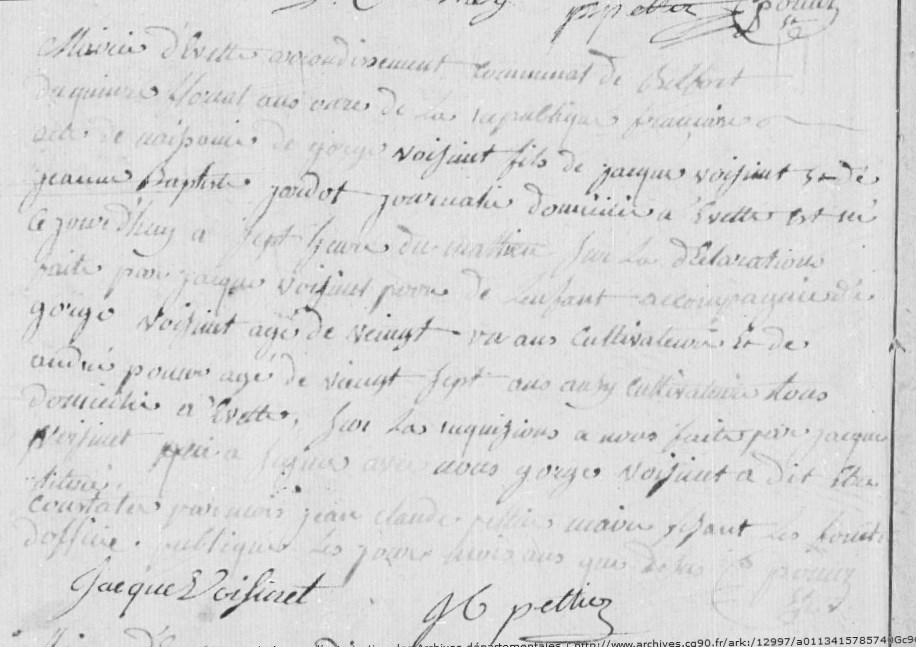 pettier
Mairie d'Evette arrondissement communal de Belfort
du quinze floreal an onze de la republique francaise
acte de naissance de gorge Voisinet fils de jacque Voisinet et de
jeanne Baptiste jardot journalie domicilie a Evette est né
ce jourdhuy a sept heure du mattin sur la declaration
faite par jacque Voisinet perre de lenfant accompagnie de
gorge Voisinet agé de veingt ans cultivateure et de
andré agé de veingt sept ans aussy cultivateure tous
domicilie a Evette, sur la requizions a nous faite par jacque
Voisinet qui a signe avec nous gorge Voisinet a dit etre
Constater par mois jean claude pettier maire fesant les fonct
d'office publique les jour mois ans que dessus
Jacque Voisinet JC pettier
http://www.archives.cg90.fr/ark:/12997/a011341578574